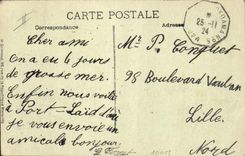 CARTE POSTALE
Correspondance
Adresse
25-11
24
Cher ami
On a eu 4 jours
de grosse mer.
Enfin nous voilà
à Port-Saïd d'où
je vous envoie un
amical bonjour.
Mr P. Conquet
98 Boulevard Vauban
Lille
Nord